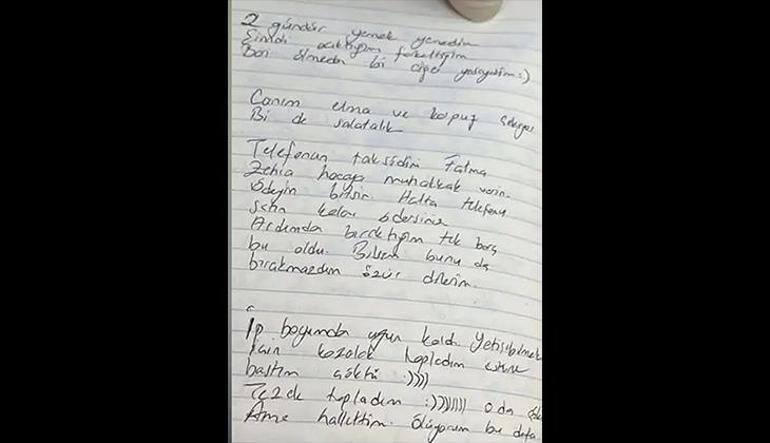 2 gündür yemek yemedim
Şimdi acıktığımı farkettim
Bari ölmeden bi ciğer yeseydim:)
Canım elma ve karpuz çekiyor
Bi de salatalık
Telefonun taksidini Fatma
Zehra hocaya muhakkak verin.
Ödeyin bitsin. Hatta telefonu
satın kalanı ödersiniz
Ardımda bıraktığım tek borç
bu oldu. Bilsem bunu da
bırakmazdım özür dilerim.
İp boyumdan uzun kaldı. Yetişebilmek
için kozalak topladım üstüne
bastım çöktü :))))
Tezek topladım :))))))) o da
Ama hallettim. Ölüyorum bu defa